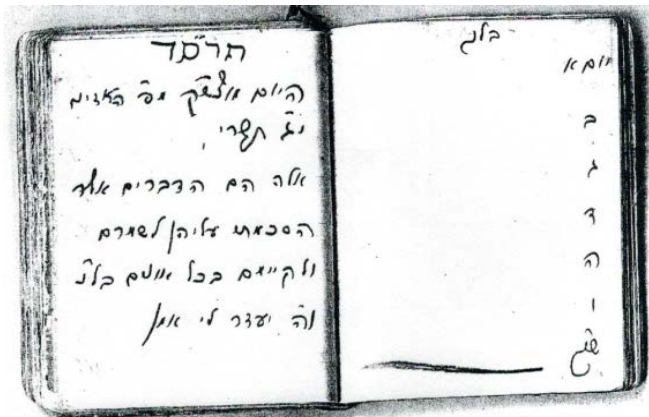 בלנ
יום א
ב
ג
ד
ה
ו
ש"ק
תרס"ד
היום מוצש"ק פ' האזינו
י"ג תשרי,
אלה הם הדברים אשר
הסכמתי עליהן לשמרם
ולקיימם בכל אופנים בל"נ
וה' יעזר לי אמן